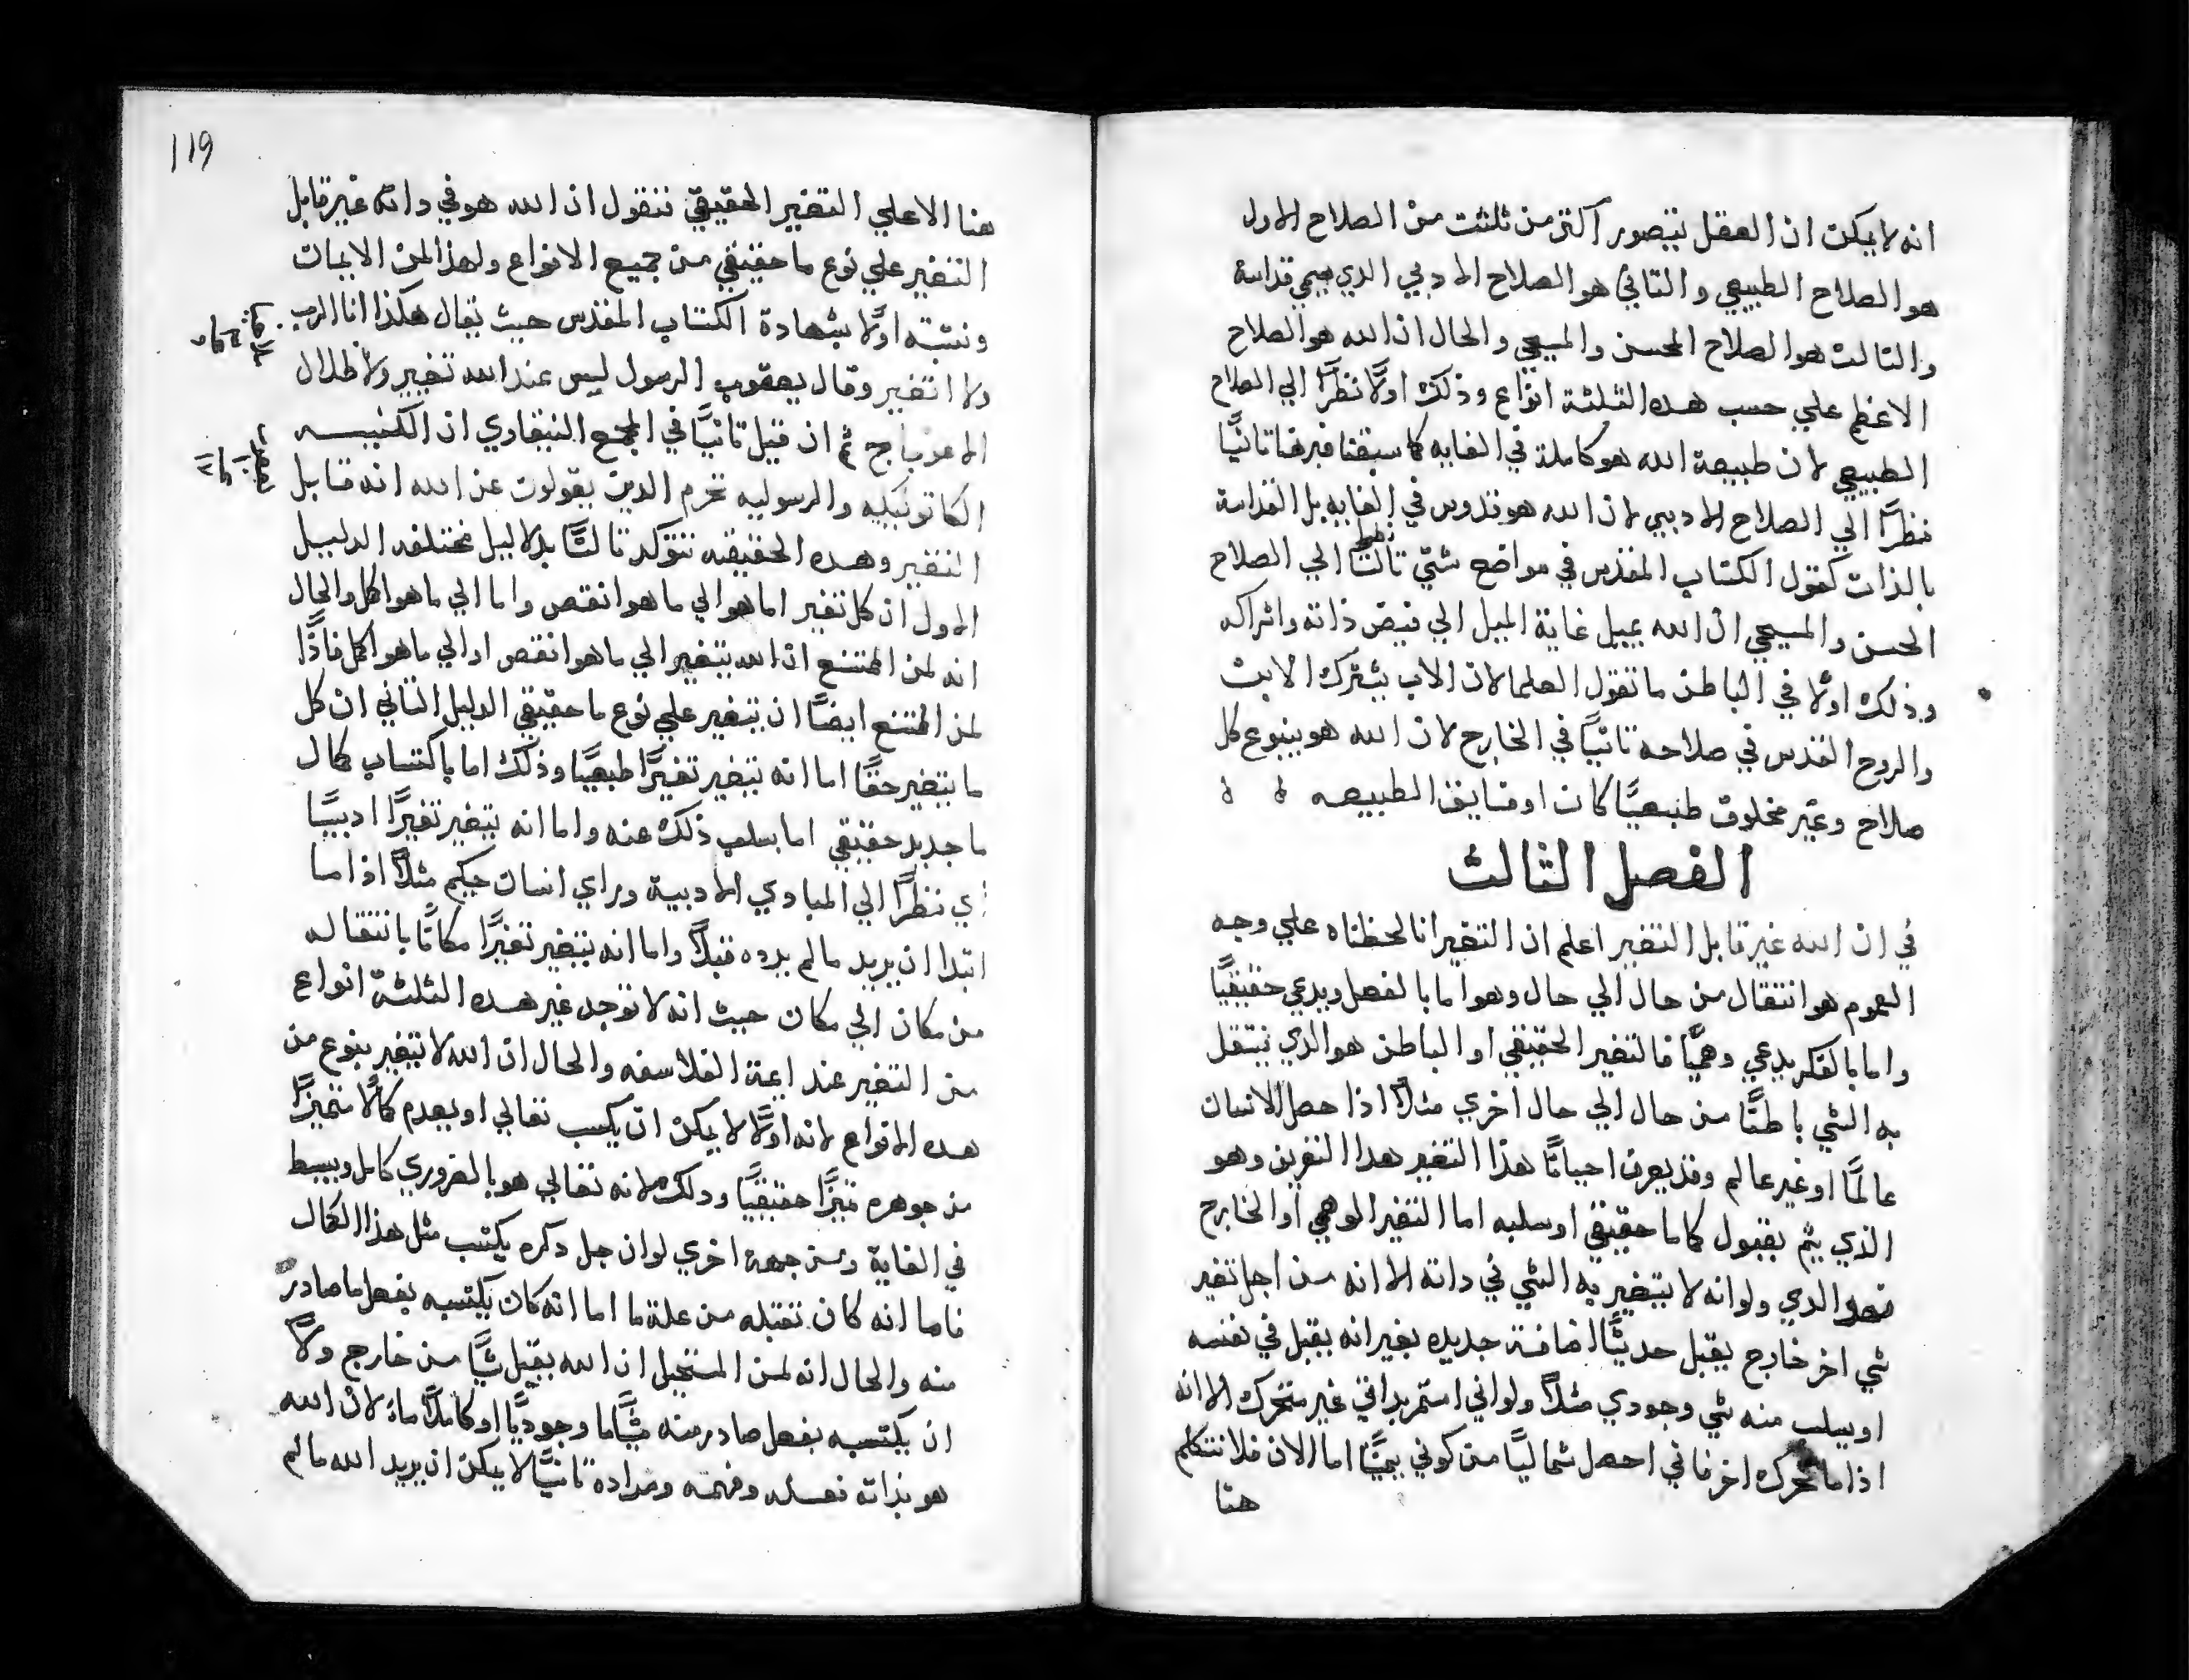 انه لا يمكن ان العقل يتصور اكتر من ثلثت من الصلاح الاول
هو الصلاح الطبيعي والثاني هو الصلاح الادبي الدي يسمي قداسة
والتالت هو الصلاح المحسن والمسيحي والحال ان الله هو الصلاح
الاعظم علي حسب هده الثلثة انواع وذلك اولًا نظرًا الي الصلاح
الطبيعي لان طبيعة الله هو كاملة في الغايه كما سبقنا فبرهنا تانيًا
نظرًا الي الصلاح الادبي لان الله هو قدوس في الغايه بل القداسة
بالذات كقول الكتاب المقدس في مواضع شتي تالتًا نظرًا الي الصلاح
المحسن والمسيحي ان الله يميل غاية الميل الي فيض ذاته واشراكه
وذلك اولًا في الباطن ما تقول العلما لان الاب يشترك الابن
والروح القدس في صلاحه تانيًا في الخارج لان الله هو ينبوع كل
صلاح وغير مخلوق طبيعيًا كان او فايق الطبيعه ه ه
الفصل الثالث
في ان الله غير قابل التغير اعلم ان التغير انا لحظناه علي وجه
العموم هو انتقال من حال الي حال وهو اما بالفعل ويدعي حقيقيًا
واما بالفكر يدعي وهميًا فالتغير الحقيقي او الباطن هو الدي ينتقل
به الشي باطنًا من حال الي حال اخري مثلًا اذا حصل الانسان
عالمًا او غير عالم وقد يعرف احيانًا هذا التغير هدا التعريف وهو
الذي يتم بقبول كما ما حقيقي او سلبه اما التغير الوهمي او الخارج
فهو الدي ولو انه لا يتغير به الشي في داته الا انه من اجل تغير
شي اخر خارج يقبل حديثًا اضافة جديده بغير انه يقبل في نفسه
او يسلب منه شي وجودي مثلًا ولو اني استمريد اني غير متحرك الا انه
اذا ما تحرك اخر فاني احصل شماليًا من كوني يمينًا اما الان فلا نتكلم
هنا
119
هنا الا علي التغير الحقيقي فنقول ان الله هو في داته غير قابل
التغير علي نوع ما حقيقي من جميع الانواع ولهذا لمن الايمان
ونثبته اولًا بشهادة الكتاب المقدس حيث يقال هكذا انا الرب
ولا اتغير وقال يعقوب الرسول ليس عند الله تغيير ولا ظلال
الاعوجاج ثم ان قيل تانيًا في المجمع النيقاوي ان الكنيسه
الكاتوليكيه والرسوليه تحرم الدين يقولون عن الله انه قابل
التغير وهده الحقيقه تتوكد تالتًا بدلاليل مختلفه الدليل
الاول ان كل تغير اما هو الي ما هو انقص واما الي ما هو اكمل والحال
انه لمن الممتنع ان الله يتغير الي ما هو انقص او الي ما هو اكمل فاذًا
لمن الممتنع ايضًا ان يتغير علي نوع ما حقيقي الدليل التاني ان كل
ما يتغير حقًا اما انه يتغير تغيرًا طبيعيًا وذلك اما باكتساب كمال
ما جديد حقيقي اما بسلب ذلك عنه واما انه يتغير تغيرًا ادبيًا
اي نظرًا الي المبادي الادبية وراي انسان حكيم مثلًا اذا ما
ابتدا ان يريد ما لم يرده قبلًا واما انه يتغير تغيرًا مكانًا بانتقاله
من مكان الي مكان حيث انه لا توجد غير هده الثلثة انواع
من التغير عند ايمة الفلاسفه والحال ان الله لا يتغير بنوع من
هده الانواع لانه اولًا لا يمكن ان يكسب تعالي او يعدم كمالًا متميزًا
من جوهره تميزًا حقيقيًا ودلك لانه تعالي هو بالضروري كامل وبسيط
في الغاية ومن جهة اخري لو ان جل دكره يكتسب مثل هذا الكمال
فاما انه كان تقبله من علة ما اما انه كان يكتسبه بفعل ما صادر
منه والحال انه لمن المستحيل ان الله يقبل شيًا من خارج ولا
ان يكتسبه بفعل صادر منه شيًا ما وجوديًا او كاملًا ما لان الله
هو بذاته فعله وفهمه ومراده تانيًا لا يمكن ان يريد الله ما لم